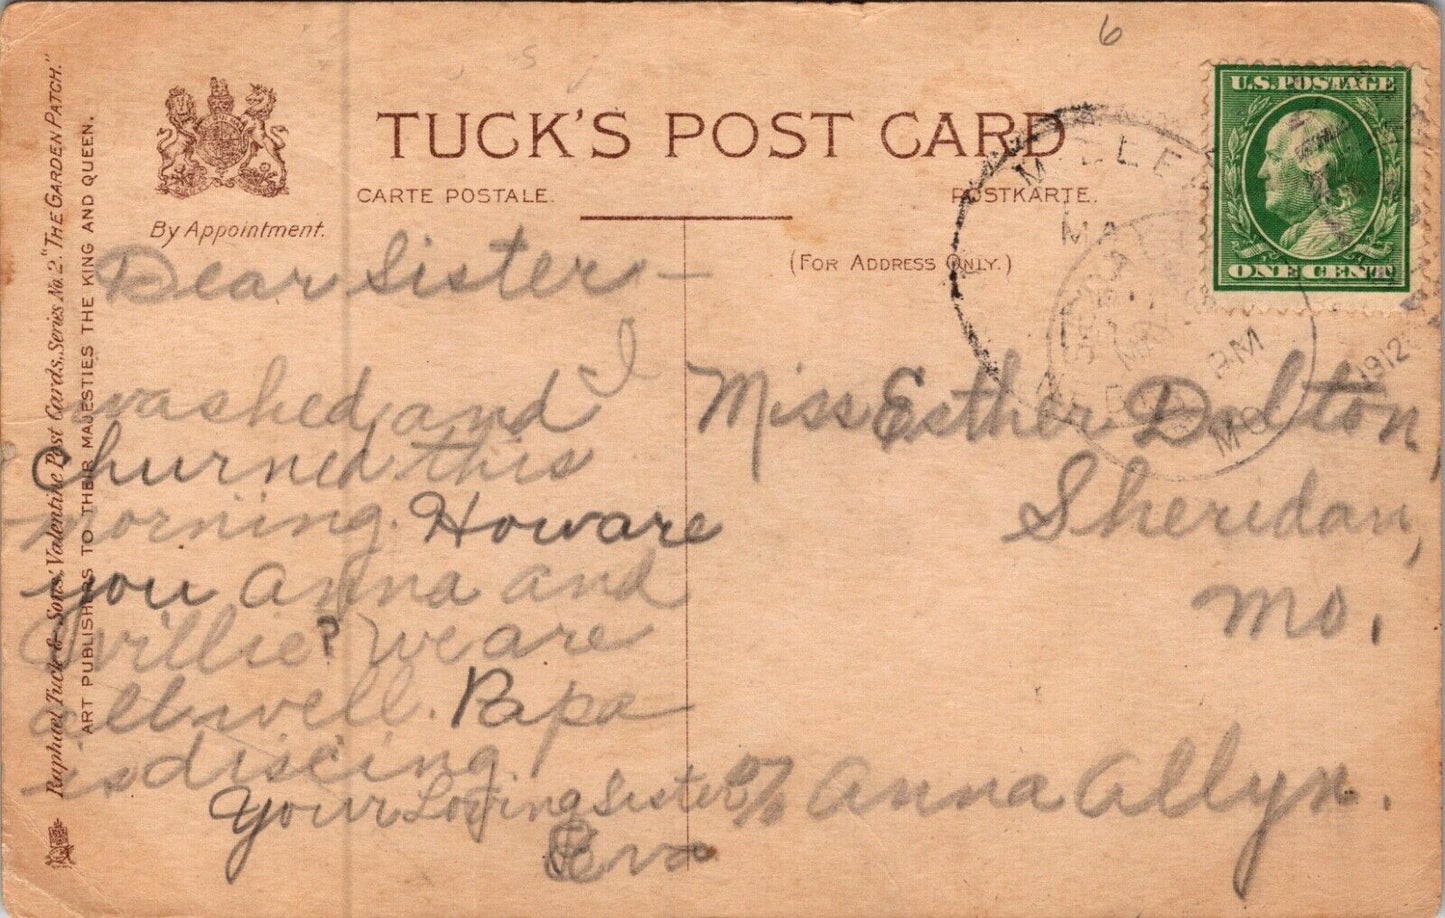 6
U.S. POSTAGE
ONE CENT
TUCK'S POST CARD
CARTE POSTALE.
POSTKARTE.
By Appointment.
(FOR ADDRESS ONLY.)
Raphael Tuck & Sons' Valentine Post Cards, Series No. 2. "THE GARDEN PATCH."
ART PUBLISHERS TO THEIR MAJESTIES THE KING AND QUEEN.
MAY
PM
1912
MO
Dear Sister —
I
washed and
churned this
morning. How are
you Anna and
Willie? We are
all well. Papa
is discing
Your Loving Sister
Eva
Miss Esther Dalton,
Sheridan,
Mo.
c/o Anna Allyn.